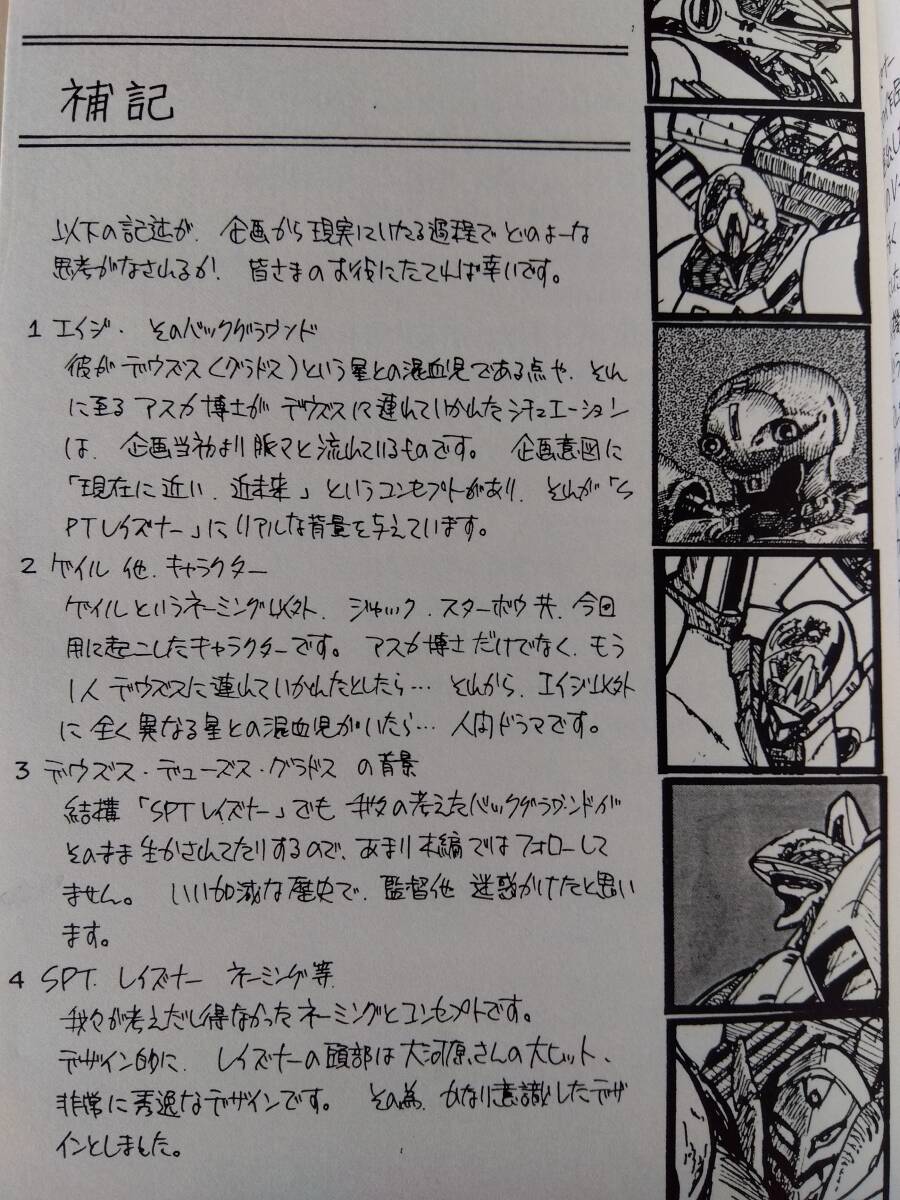 補記
以下の記述が、企画から現実にいたる過程でどのような
思考がなされるか！皆さまのお役にたてれば幸いです。
1 エイジ・そのバックグラウンド
彼がデウズス（グラドス）という星との混血児である点や、それ
に至るアスカ博士がデウズスに連れていかれたシチュエーション
は、企画当初より脈々と流れているものです。企画意図に
「現在に近い、近未来」というコンセプトがあり、それが「S
PTレイズナー」にリアルな背景を与えています。
2 ゲイル他、キャラクター
ゲイルというネーミング以外、ジャック、スターボウ共、今回
用に起こしたキャラクターです。アスカ博士だけでなく、もう
1人デウズスに連れていかれたとしたら… それから、エイジ以外
に全く異なる星との混血児がいたら… 人間ドラマです。
3 デウズス・デューズス・グラドスの背景
結構「SPTレイズナー」でも我々の考えたバックグラウンドが
そのまま生かされてたりするので、あまり本編ではフォローして
ません。いい加減な歴史で、監督他迷惑かけたと思い
ます。
4 SPT. レイズナー ネーミング等
我々が考えだし得なかったネーミングとコンセプトです。
デザイン的に、レイズナーの頭部は大河原さんの大ヒット、
非常に秀逸なデザインです。その為、かなり意識したデザ
インとしました。